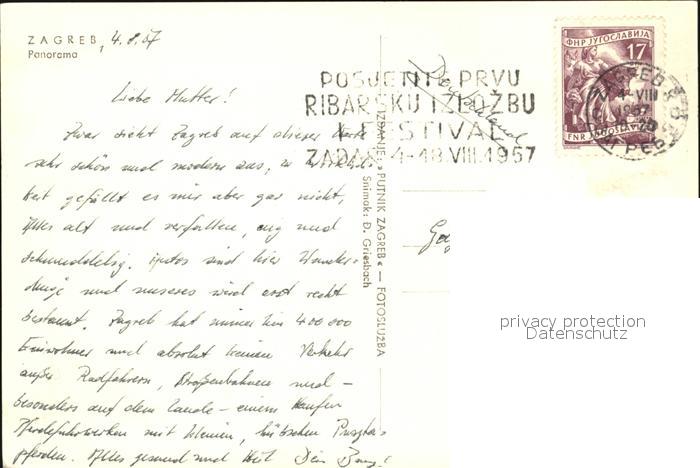 ZAGREB, 4.8.57
Panorama
Liebe Mutter!
Zwar sieht Zagreb auf dieser Karte
sehr schön und modern aus, in Wirklich-
keit gefällt es mir aber gar nicht,
Alles alt und verfallen, eng und
schmuddelig. Autos sind hier Wunder-
dinge und unseres wird erst recht
bestaunt. Zagreb hat immerhin 400 000
Einwohner und absolut keinen Verkehr
außer Radfahrern, Straßenbahnen und –
besonders auf dem Lande – einem Haufen
Pferdefuhrwerken mit kleinen, hübschen Puszta-
pferden. Alles gesund und
Dein
IZDANJE: »PUTNIK ZAGREB« — FOTOSLUŽBA
Snimak: D. Griesbach
POSJETITE PRVU
RIBARSKU IZLOŽBU
I FESTIVAL
ZADAR 4-18.VIII.1957
ФНР ЈУГОСЛАВИЈА
17
FNR JUGOSLAVIJA
ZAGREB
4 VIII
1957
privacy protection
Datenschutz